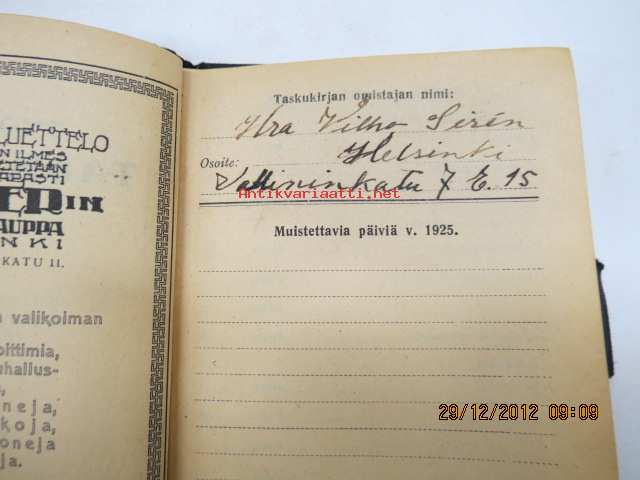 LUETTELO
N ILMES
TETAAN
ER IN
AUPPA
NKI
KATU 11.
valikoiman
oittimia,
uhallus-
neja,
koja,
oneja
ja.
Taskukirjan omistajan nimi:
Hra Vilho Sirén
Osoite: Helsinki
Vallininkatu 7 E. 15
Antikvariaatti.net
Muistettavia päiviä v. 1925.
29/12/2012 09:09